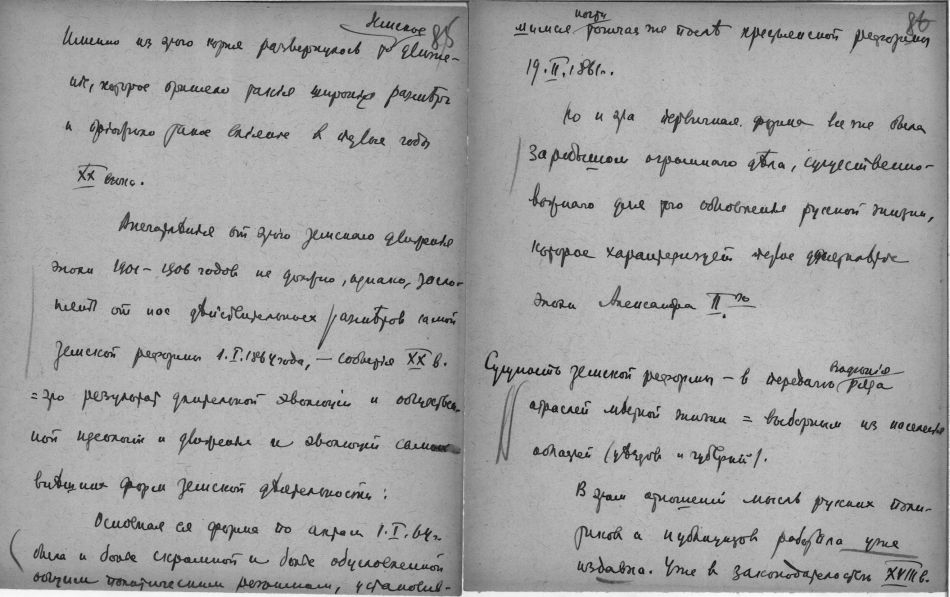 85
земское
Именно из этого корня развернулось движе-
ніе, которое приняло такія широкія размѣры
и оказало такое вліяніе в первые годы
XX вѣка.
Впечатлѣнія от этого земского движенія
эпохи 1901–1906 годов не должно, однако, засло-
нять от нас дѣйствительных размѣров самой
земской реформы 1.I.1864 года, — событія XX в.
= это результат длительной эволюціи и обществен-
ной идеологіи и движенія и эволюціи самых
внѣшних форм земской дѣятельности:
Основная ея форма по актам 1.I.64 г.
была и болѣе скромной и болѣе обусловленной
общим политическим режимом, установив-
86
почти
шимся тотчас же послѣ крестьянской реформы
19.II.1861 г.
Но и эта первичная форма все же была
зародышом огромнаго дѣла, существенно-
важнаго для того обновленія русской жизни,
которое характеризует первое десятилѣтіе
эпохи Александра II-го.
Сущность земской реформы – в передачѣ ряда
отраслей мѣстной жизни = выборным из населенія
областей (уѣздов и губерній).
В этом отношеніи мысль русских поли-
тиков и публицистов работала уже
издавна. Уже в законодательствѣ XVIII в.